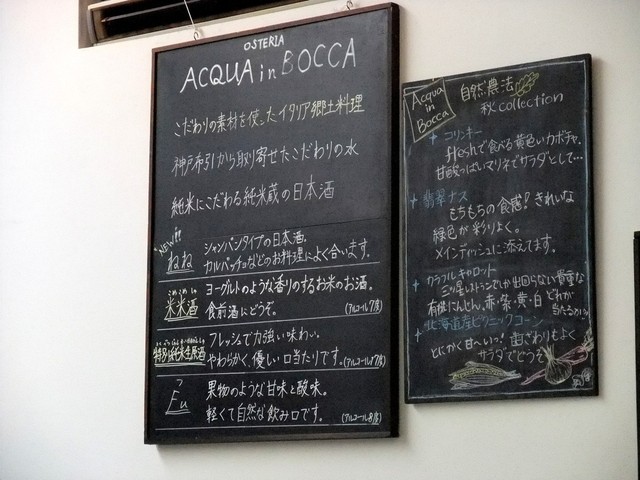 OSTERIA
ACQUA in BOCCA
こだわりの素材を使ったイタリア郷土料理
神戸布引から取り寄せたこだわりの水
純米にこだわる純米蔵の日本酒
NEW!!
ねね
シャンパンタイプの日本酒。
カルパッチョなどのお料理によく合います。
米米酒
ヨーグルトのような香りのするお米のお酒。
食前酒にどうぞ。
(アルコール7度)
特別純米生原酒
フレッシュで力強い味わい。
やわらかく、優しい口当たりです。(アルコール17度)
Fu
果物のような甘味と酸味。
軽くて自然な飲み口です。
(アルコール8度)
Acqua
in
Bocca
自然農法
秋 collection
コリンキー
freshで食べる黄色いカボチャ。
甘酸っぱいマリネでサラダとして…
翡翠ナス
もちもちの食感! きれいな
緑色が彩りよく。
メインディッシュに添えてます。
カラフルキャロット
三ツ星レストランでしか出回らない貴重な
有機にんじん。赤・紫・黄・白 どれが
当たるかな
北海道産ピクニックコーン
とにかく甘〜いっ! 歯ざわりもよく
サラダでどうぞ